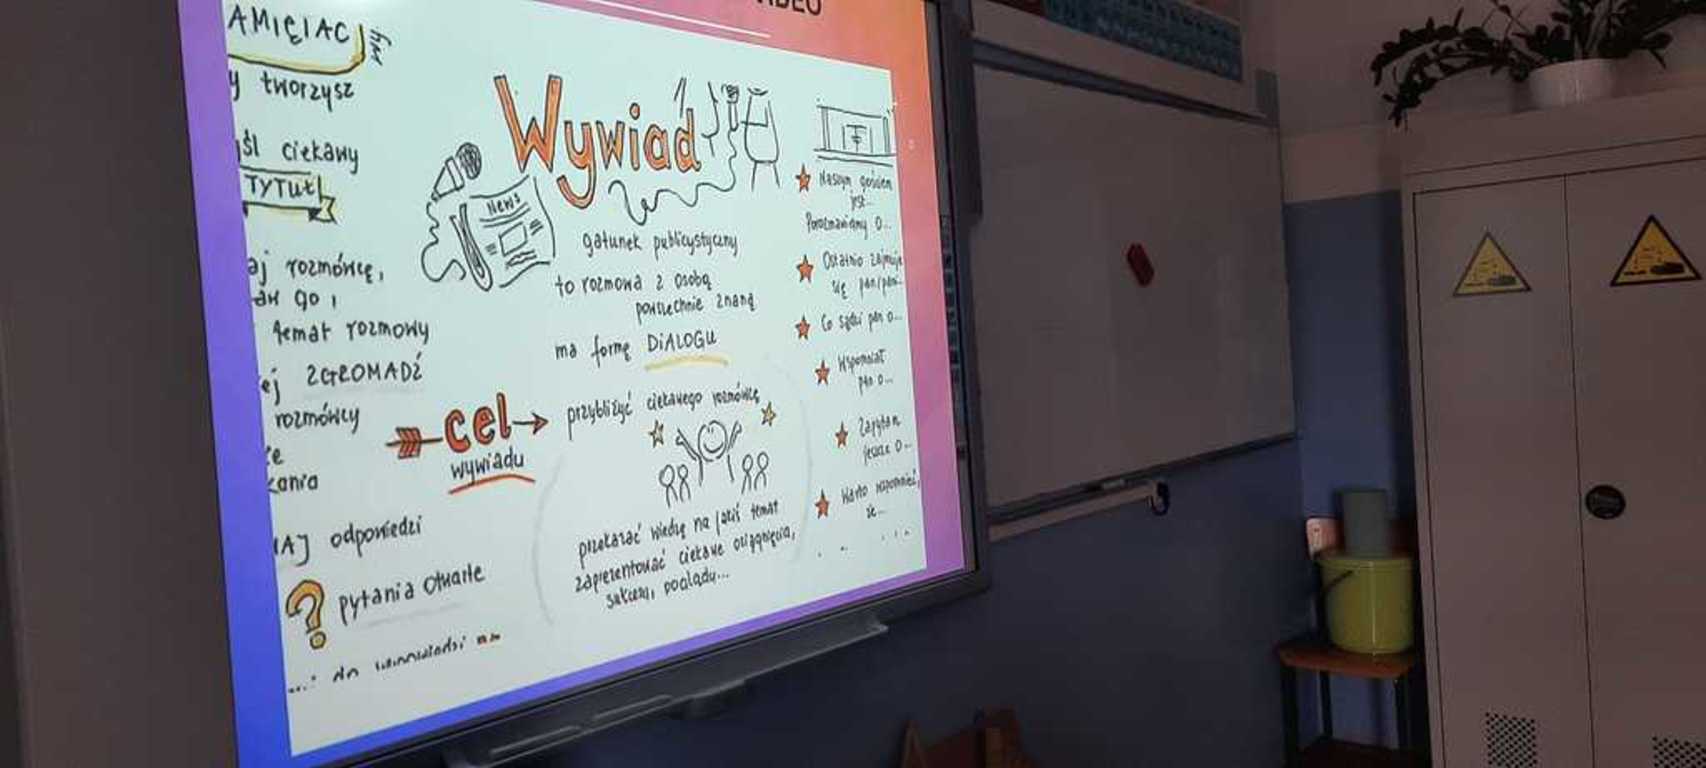 AMIĘTAĆ
y tworzysz
śl ciekawy
TYTUŁ
aj rozmówcę,
aw go i
temat rozmowy
ej ZGROMADŹ
rozmówcy
że
kania
AJ odpowiedzi
? pytania otwarte
do
Wywiad
News
gatunek publicystyczny
to rozmowa z osobą
powszechnie znaną
ma formę DiALOGU
cel
wywiadu
przybliżyć ciekawego rozmówcę
przekazać wiedzę na jakiś temat
zaprezentować ciekawe osiągnięcia,
sukcesy, poglądy...
Naszym gościem
jest...
Porozmawiamy o...
Ostatnio zajmuje
się pan/pani...
Co sądzi pan o...
Wspomniał
pan o...
Zapytam
jeszcze o...
Warto wspomnieć,
że...